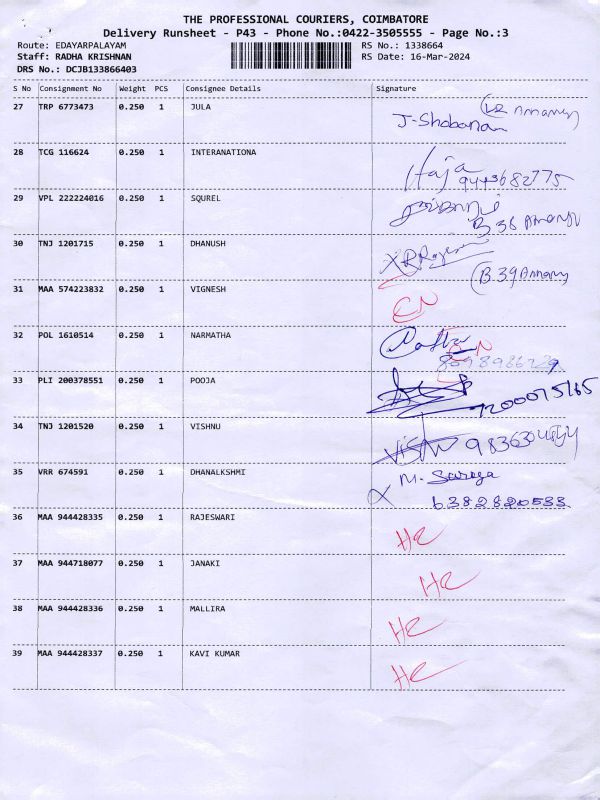 THE PROFESSIONAL COURIERS, COIMBATORE
Delivery Runsheet - P43 - Phone No.:0422-3505555 - Page No.:3
Route: EDAYARPALAYAM RS No.: 1338664
Staff: RADHA KRISHNAN RS Date: 16-Mar-2024
DRS No.: DCJB133866403
S No Consignment No Weight PCS Consignee Details Signature
27 TRP 6773473 0.250 1 JULA
J-Shobana
28 TCG 116624 0.250 1 INTERANATIONA
Haja
9443682775
29 VPL 222224016 0.250 1 SQUREL
B 36
30 TNJ 1201715 0.250 1 DHANUSH
B.39
31 MAA 574223832 0.250 1 VIGNESH
CN
32 POL 1610514 0.250 1 NARMATHA
33 PLI 200378551 0.250 1 POOJA
34 TNJ 1201520 0.250 1 VISHNU
35 VRR 674591 0.250 1 DHANALKSHMI
M. Saroja
6382820533
36 MAA 944428335 0.250 1 RAJESWARI
HC
37 MAA 944718077 0.250 1 JANAKI
HC
38 MAA 944428336 0.250 1 MALLIRA
HC
39 MAA 944428337 0.250 1 KAVI KUMAR
HC